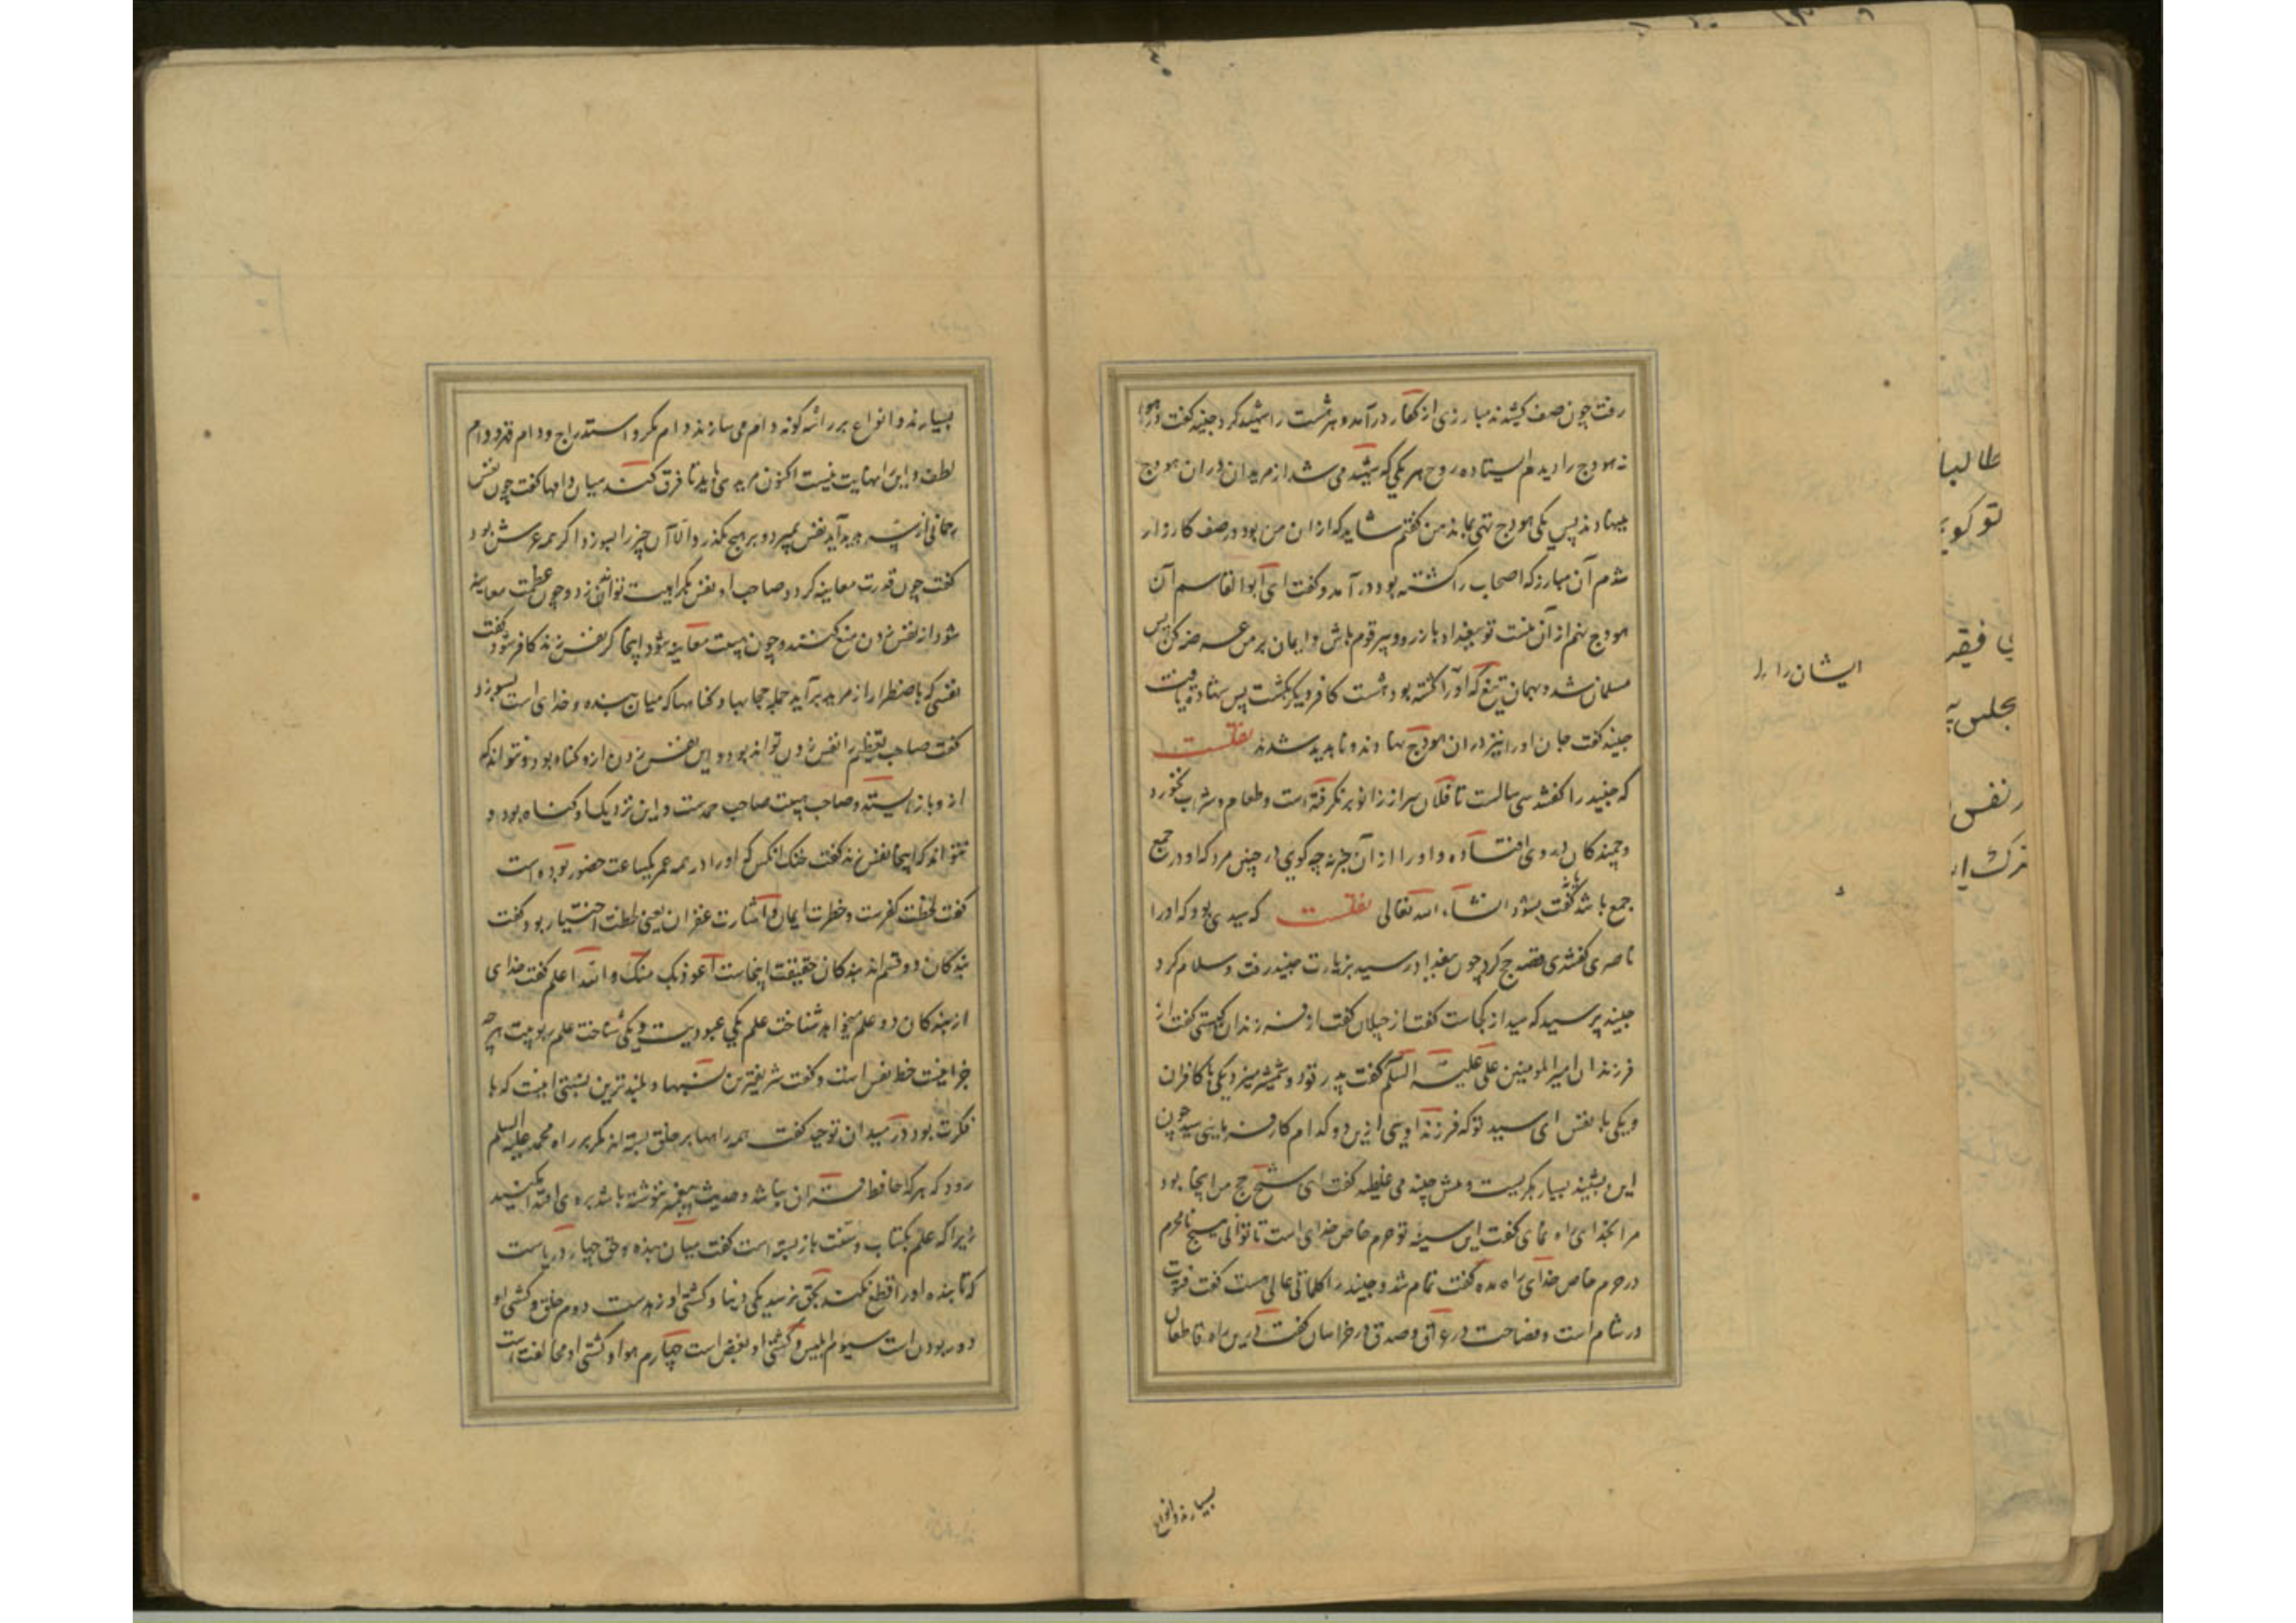 رفت چون صف کشیدند مبارزی از کفار درآمد و هر هشت را شهید کرد جنید گفت در هوا
نه هودج را دیدم ایستاده روح هر یکی که شهید می شد از مریدان در ان هودج
مینهادند پس یکی هودج تهی بماند من گفتم شاید که از ان من بود در صف کارزار
شدم آن مبارز که اصحاب را کشته بود در آمد و گفت ای ابوالقاسم آن
هودج نهم از آن منست تو ببغداد باز رو و پیر قوم باش و ایمان بر من عرضه کن پس
مسلمان شد و بهمان تیغ که او را کشته بود هشت کافر دیگر بکشت پس شهادت یافت
جنید گفت جان او را نیز در ان هودج نهادند و ناپدید شدند نقلست
که جنید را گفتند سی سالست تا فلان سر از زانو بر نگرفته است و طعام و شراب نخورد
و جمندکان در وی افتاده و او را از آن خبر نه چه گویی در چنین مرد که او در جمع
جمع باشد یا نه گفت بشود انشاء الله تعالی نقلست که سیدی بود که او را
ناصری گفتندی قصد حج کرد چون ببغداد رسید بزیارت جنید رفت و سلام کرد
جنید پرسید که سید از کجاست گفت از جیلان گفت از فرزندان کیستی گفت از
فرزندان امیر المومنین علی علیه السلم گفت پدر تو دو شمشیر میزد یکی با کافران
و یکی با نفس ای سید تو که فرزند اویی ازین دو کدام کار فرمایی سید چون
این بشنید بسیار بگریست و پیش جنید می غلطید گفت ای شیخ حج من اینجا بود
مرا بخدای راه نمای گفت این سینه تو حرم خاص خدای است تا توانی هیچ نامحرم
در حرم خاص خدای راه مده گفت تمام شد و جنید را کلماتی عالی است گفت فتوت
در شام است و فصاحت در عراق و صدق در خراسان گفت درین راه قاطعان
بسیارند و انواع
ایشان را
بسیارند و انواع بر راه سه گونه دام می سازند دام مکر و استدراج و دام قهر و دام
لطف و این را نهایت نیست اکنون مریدی باید تا فرق کند میان دامها گفت چون نفس
رحمانی از سر پدید آید نفس بمیرد و بر هیچ نگذرد الا آن چیز را بسوزد اگر همه عرش بود
گفت چون قدرت معاینه گردد صاحب او نفس بکراهیت تواند زد و چون عظمت معاینه
شود از نفس زدن منع کنند و چون هیبت معاینه شود اینجا گر نفس زند کافر شود گفت
نفسی که باضطرار از مرید برآید جمله حجابها و گناهها که میان بنده و خدای است بسوزد
گفت صاحب تعظیم را نفس زدن تواند بود و این نفس زدن ازو گناه بود و نتواند که
ازو باز ایستد و صاحب هیبت صاحب حمدست و این نزدیک او گناه بود و
نتواند که اینجا نفس زند گفت خنک انکس که او را در همه عمر یکساعت حضور بوده است
گفت لحظت کفرست و خطرت ایمان و اشارت غفران یعنی لحظت اختیار بود گفت
بندگان دو قسم اند بندگان حقیقت اینجاست اعوذ بک منک و الله اعلم گفت خدای
از بندگان دو علم میخواهد شناخت علم یکی عبودیت و یکی شناخت علم ربوبیت هرچه
جز اینست حظ نفس است و گفت شریفترین نشستها و بلندترین نشستی اینست که با
فکرت بود در میدان توحید گفت همه راهها بر خلق بسته اند مگر بر راه محمد علیه السلم
رود که هر که حافظ قران نباشد و حدیث پیغمبر ننوشته باشد بروی اقتدا مکنید
زیرا که علم بکتاب و سنت باز بسته است گفت میان بنده و حق چهار دریاست
که تا بنده او را قطع نکند بحق نرسد یکی دنیا و کشتی او زهدست دوم خلق و کشتی او
دور بودن است سیوم ابلیس و کشتی او بغض است چهارم هوا و کشتی او مخالفت است